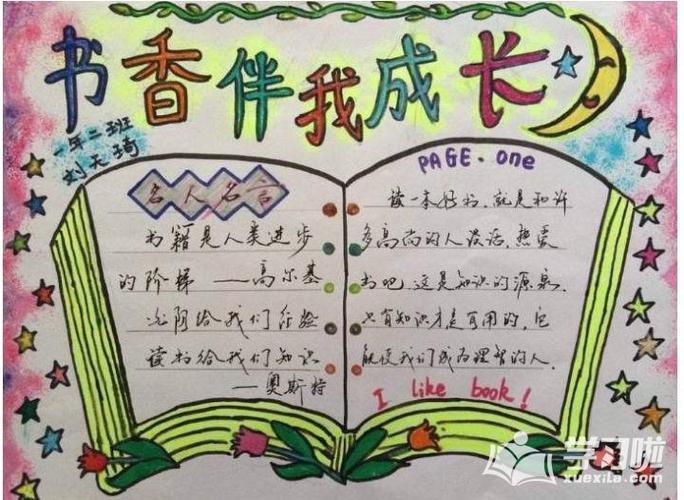 书香伴我成长
一年二班
刘天琦
名人名言
书籍是人类进步
的阶梯——高尔基
光阴给我们经验
读书给我们知识
——奥斯特
PAGE.one
读一本好书,就是和许
多高尚的人谈话,热爱
书吧,这是知识的源泉.
只有知识才是可用的,它
能使我们成为理智的人.
I like book!
学习啦
xuexila.com